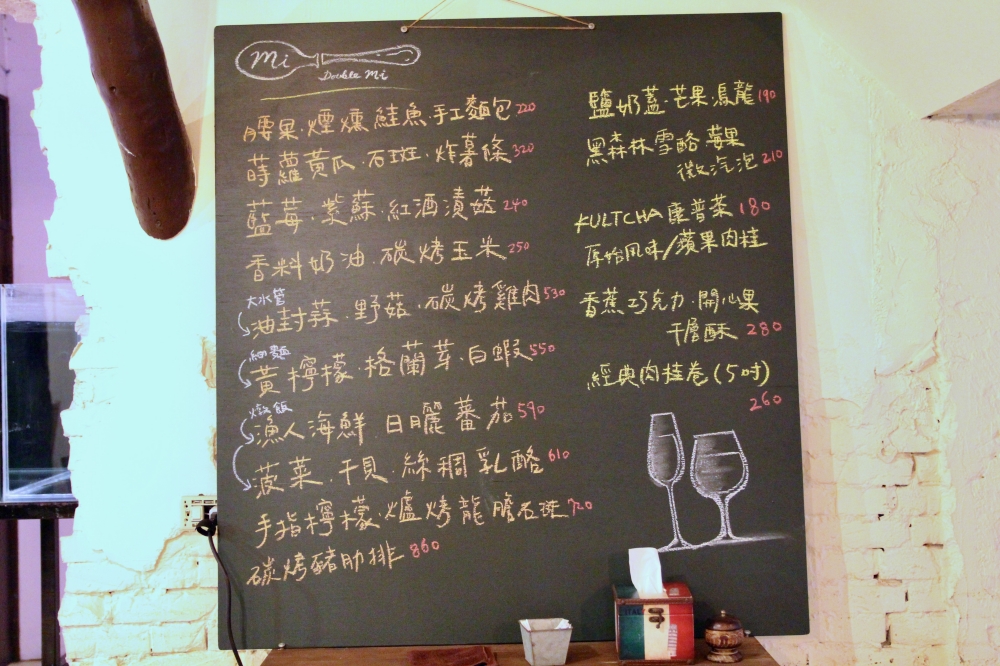 mi
Double mi
腰果·煙燻鮭魚·手工麵包 220
蒔蘿黃瓜·石斑·炸薯條 320
藍莓·紫蘇·紅酒漬菇 240
香料奶油·碳烤玉米 250
大水管
油封蒜·野菇·碳烤雞肉 530
細麵
黃檸檬·格蘭芽·白蝦 550
燉飯
漁人海鮮 日曬蕃茄 590
菠菜·干貝·絲稠乳酪 610
手指檸檬·爐烤龍膽石斑 720
碳烤豬肋排 860
鹽奶蓋·芒果烏龍 190
黑森林雪酪莓果
微汽泡 210
KULTCHA 康普茶 180
原始風味/蘋果肉桂
香蕉巧克力·開心果
千層酥 280
經典肉桂卷(5吋)
260